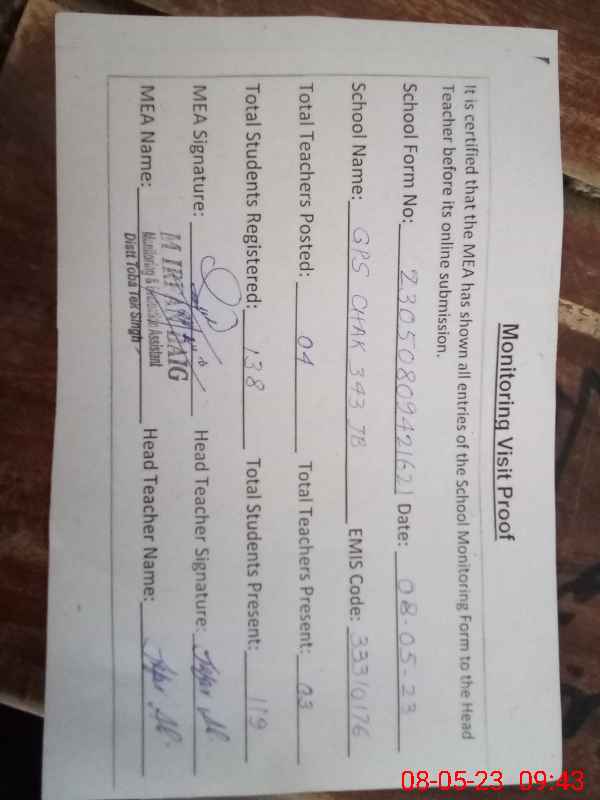 Monitoring Visit Proof
It is certified that the MEA has shown all entries of the School Monitoring Form to the Head
Teacher before its online submission.
School Form No: 23050809421621 Date: 08-05-23
School Name: GPS CHAK 343 JB EMIS Code: 33310176
Total Teachers Posted: 04 Total Teachers Present: 03
Total Students Registered: 138 Total Students Present: 119
MEA Signature: Head Teacher Signature:
MEA Name: M IRFAN BAIG Head Teacher Name:
Monitoring & Assistant
Distt Toba Tek Singh
08-05-23 09:43